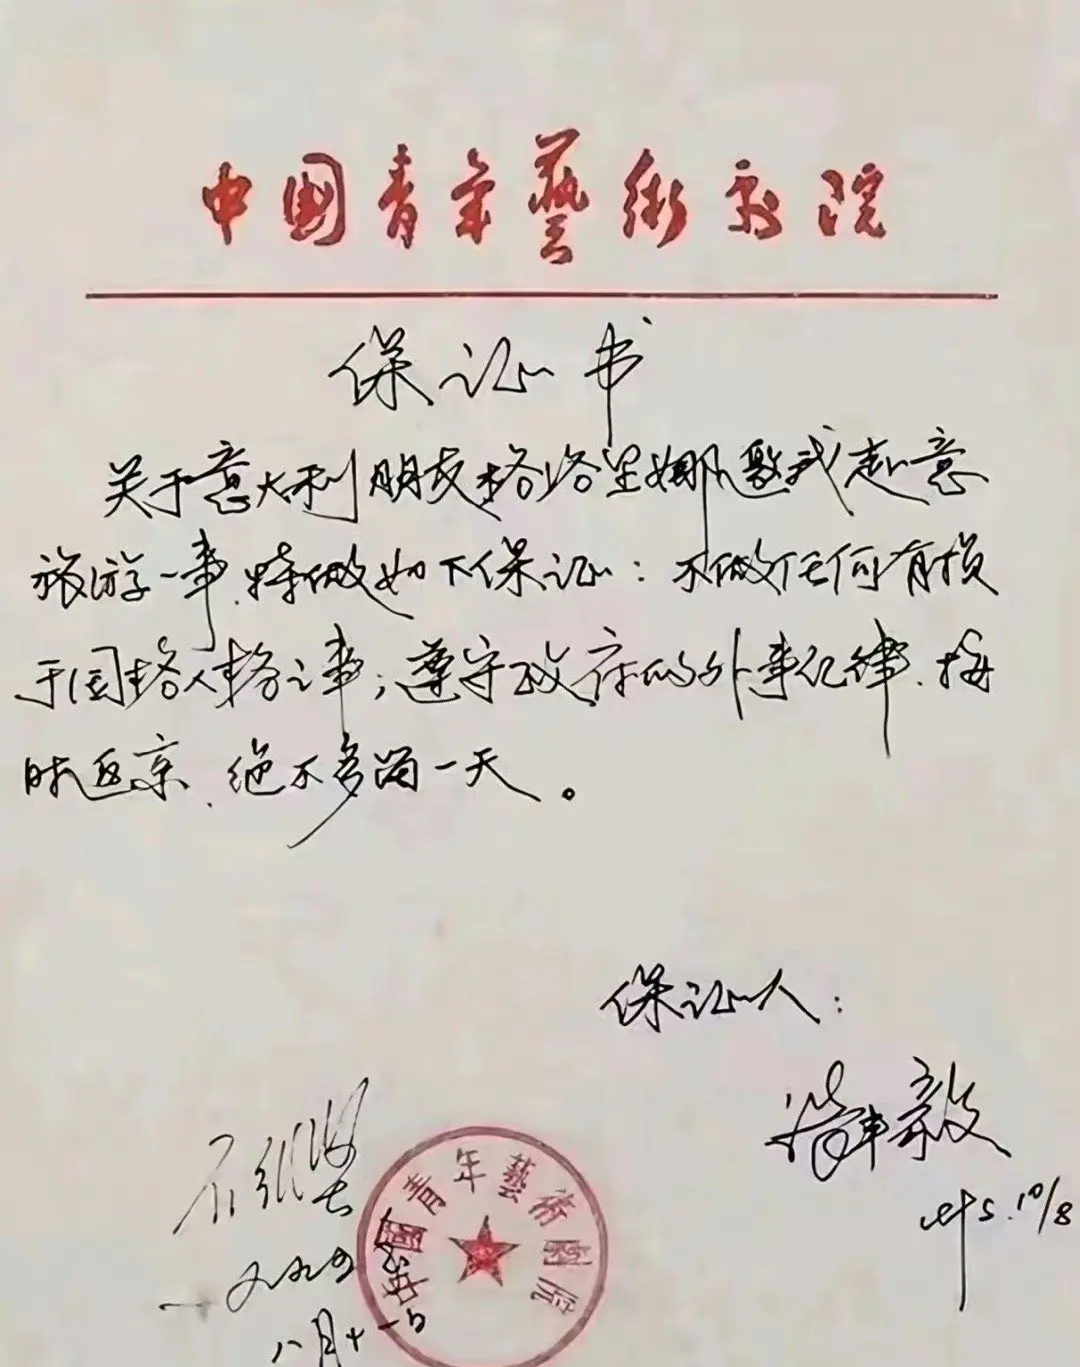 中國青年藝術劇院
保证书
关于意大利朋友格洛里娜邀我赴意
旅游一事，特做如下保证：不做任何有损
于国格人格之事；遵守政府的外事纪律，按
时返京，绝不多留一天。
保证人：
10/8
石维坚
一九九四
八月十一日
中國青年藝術劇院